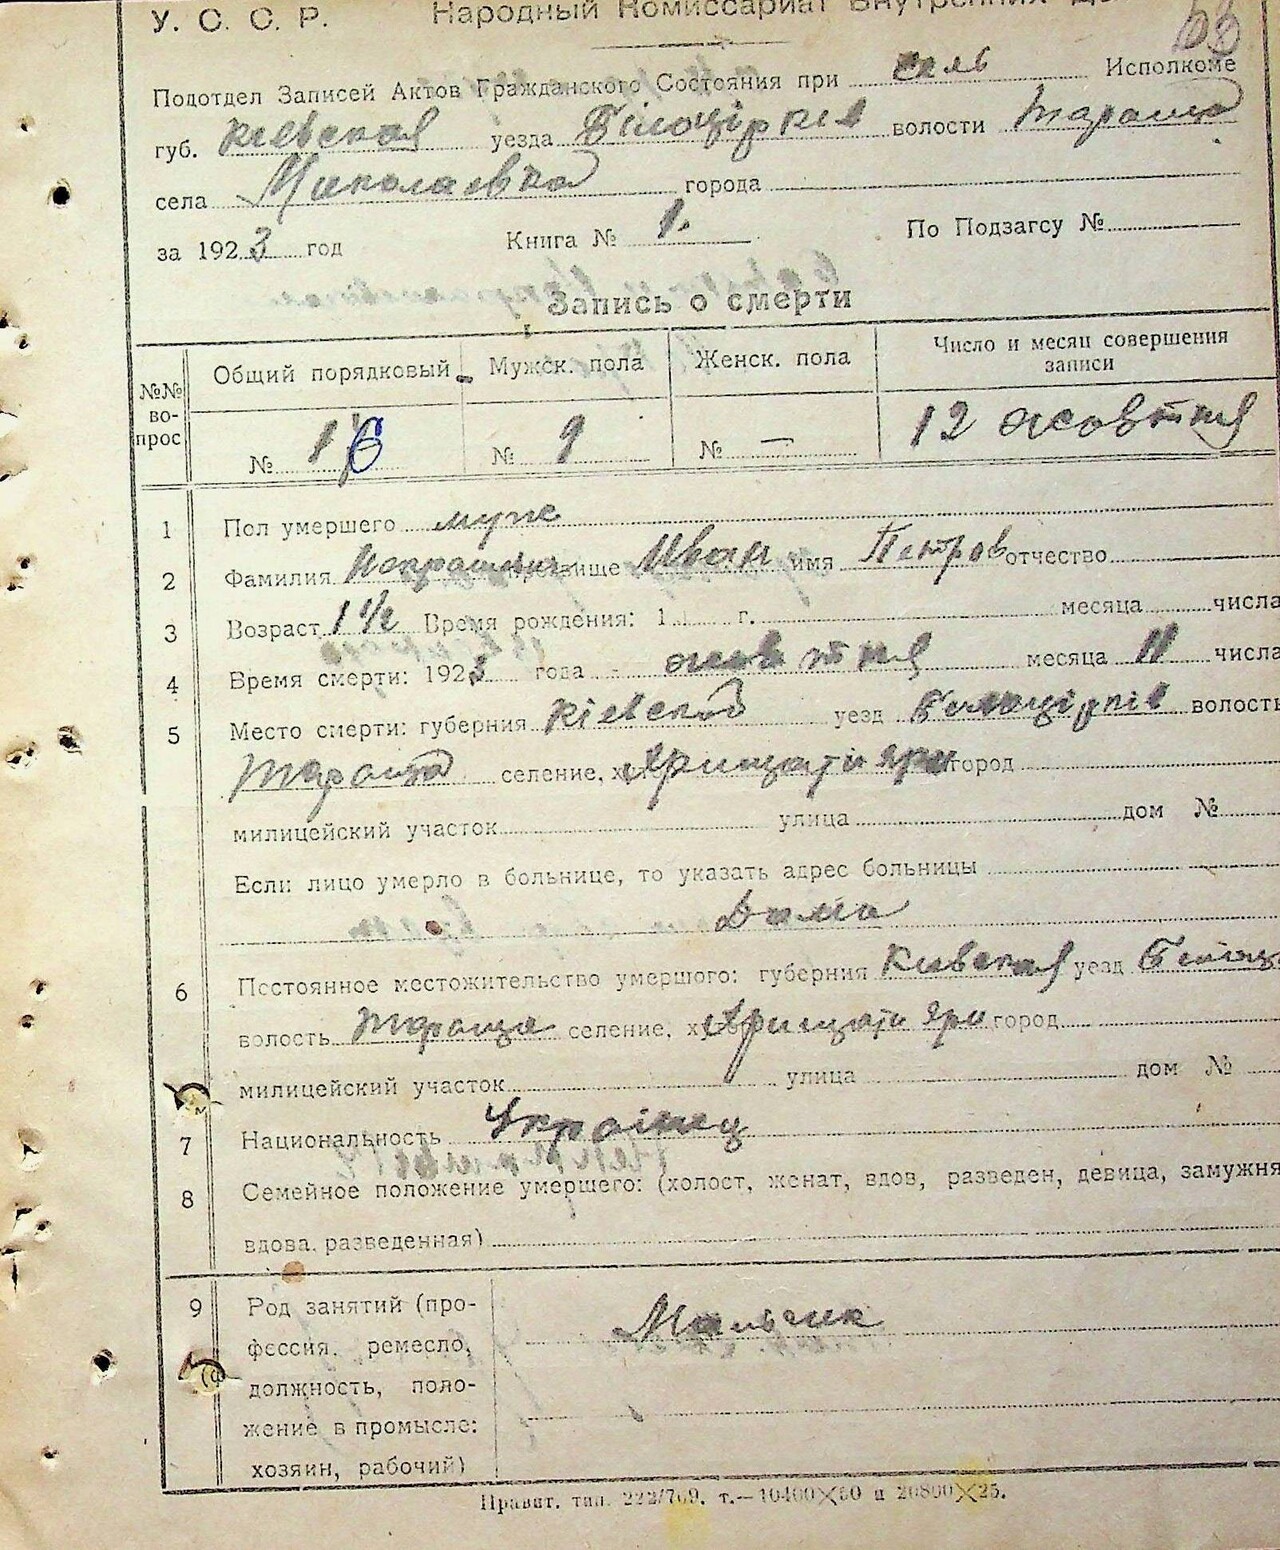 У. С. С. Р. Народный Комиссариат Внутренних
Подотдел Записей Актов Гражданского Состояния при сель Исполкоме
губ. Кіевская уезда Білоцірків волости Тараща
села Миколаевка города
за 1923 год Книга № 1. По Подзагсу №
Запись о смерти
№№ вопрос Общий порядковый Мужск. пола Женск. пола Число и месяц совершения записи
№ 16 № 9 № — 12 жовтня
1 Пол умершего муже
2 Фамилия прозвище Иван имя Петров отчество
3 Возраст 1 1/2 Время рождения: 1 г. месяца числа
4 Время смерти: 1923 года жовтня месяца 11 числа
5 Место смерти: губерния Кіевской уезд Білоцірків волость
Тараща селение, город
милицейский участок улица дом №
Если лицо умерло в больнице, то указать адрес больницы
Дома
6 Постоянное местожительство умершого: губерния Киевская уезд
волость Тараща селение, город
милицейский участок улица дом №
7 Национальность Украінец
8 Семейное положение умершего: (холост, женат, вдов, разведен, девица, замужня
вдова, разведенная)
9 Род занятий (про- Мальчик
фессия, ремесло,
должность, поло-
жение в промысле:
хозяин, рабочий)
Правит. тип. 222/769. т.—10400×50 и 20800×25.